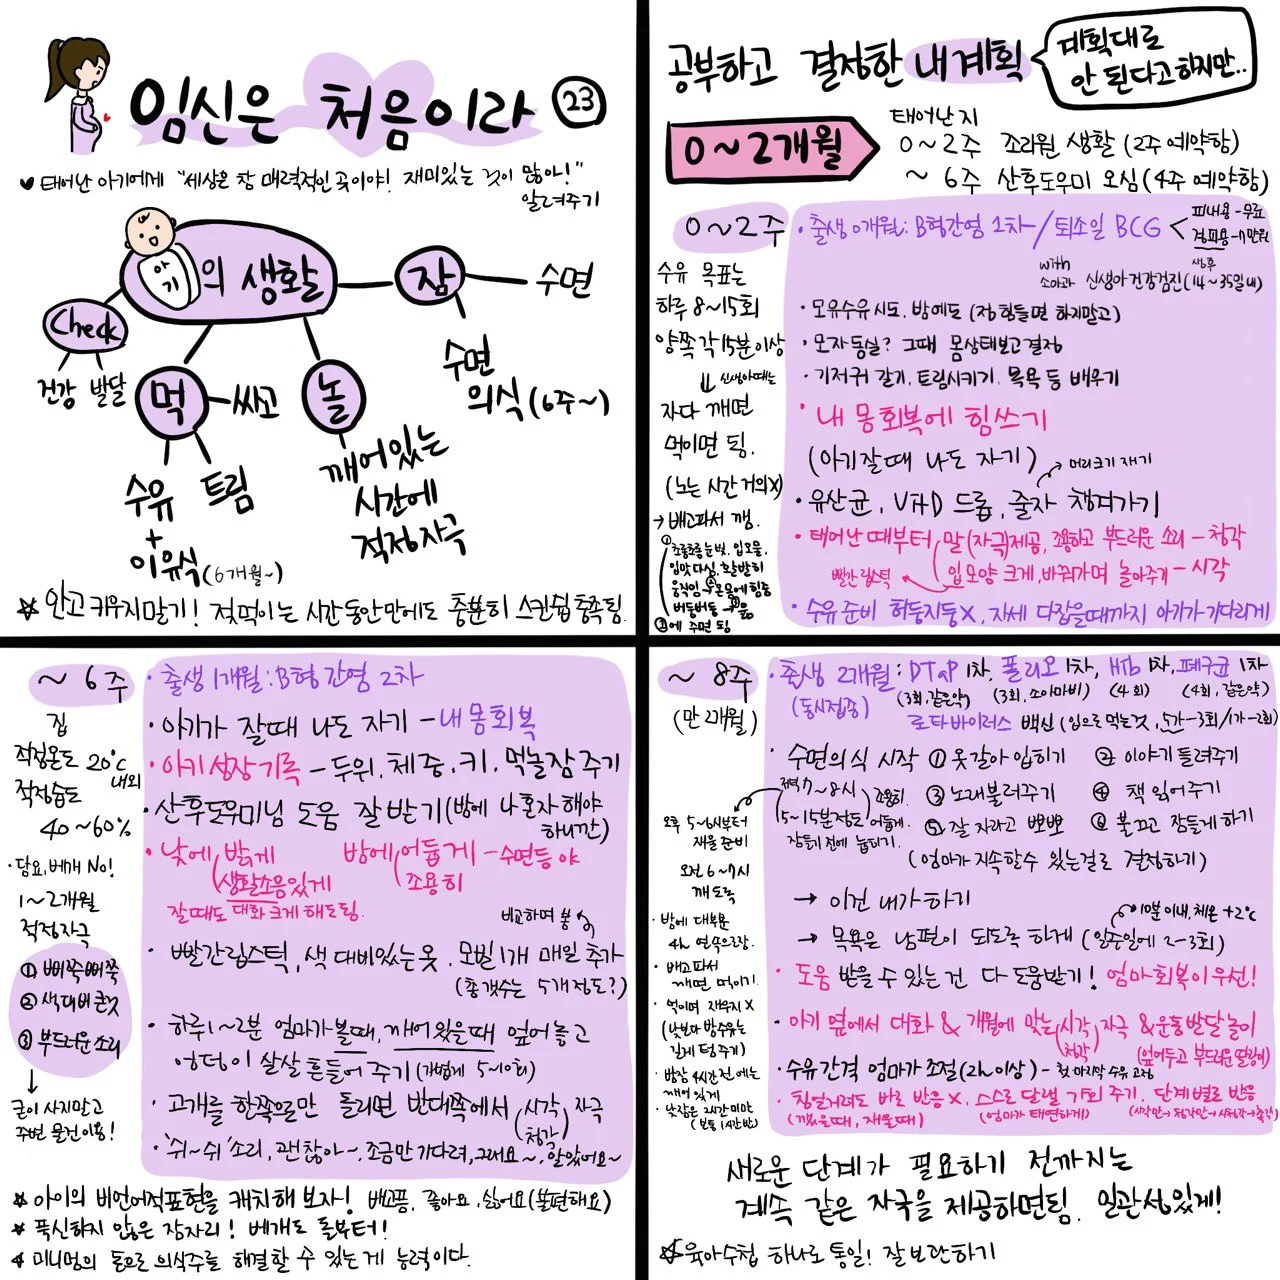 임신은 처음이라 23
♥ 태어난 아기에게 "세상은 참 매력적인 곳이야! 재미있는 것이 많아!"
알려주기
아기의 생활
잠
수면
수면
의식 (6주~)
Check
건강 발달
먹
싸고
놀
수유
+
이유식 (6개월~)
트림
깨어있는
시간에
적정자극
☆ 안고 키우지말기! 젖먹이는 시간동안만에도 충분히 스킨쉽 충족됨.
공부하고 결정한 내계획
계획대로
안 된다고하지만..
0~2개월
태어난지
0~2주 조리원 생활 (2주 예약함)
~6주 산후도우미 오심 (4주 예약함)
0~2주
수유 목표는
하루 8~15회
양쪽 각 15분이상
↓ 신생아때는
자다 깨면
먹이면 됨.
(노는 시간 거의X)
→ 배고파서 깸.
③에 주면 됨
· 출생 0개월: B형간염 1차 / 퇴소일 BCG
피내용-무료
경피용-7만원
with
소아과 신생아건강검진 (생후 14~35일내)
· 모유수유 시도. 밤에도 (정 힘들면 하지말고)
· 모자동실? 그때 몸상태보고 결정
· 기저귀 갈기, 트림시키기, 목욕 등 배우기
· 내 몸 회복에 힘쓰기
(아기잘때 나도 자기)
머리크기 재기
· 유산균, VitD 드롭, 줄자 챙겨가기
· 태어난 때부터 말(자극)제공, 조용하고 부드러운 소리 - 청각
빨간립스틱 입모양 크게, 바꿔가며 놀아주기 - 시각
· 수유 준비 허둥지둥X, 자세 다잡을때까지 아기가 기다리게
~6주
집
적정온도 20℃
내외
적정습도
40~60%
· 담요, 베개 No!
1~2개월
적정자극
① 삐쭉빼쭉
② 색대비 큰것
③ 부드러운 소리
↓
굳이 사지말고
주변 물건이용!
· 출생 1개월: B형 간염 2차
· 아기가 잘때 나도 자기 - 내 몸회복
· 아기성장기록 - 두위, 체중, 키, 먹놀잠주기
· 산후도우미님 도움 잘받기 (밤에 나혼자 해야
하니깐)
· 낮에 밝게 밤에 어둡게 - 수면등 야
생활소음있게 조용히
잘때도 대화 크게 해도됨.
비교하며 봄
· 빨간립스틱, 색 대비있는 옷, 모빌 1개 매일 추가
(총 갯수는 5개정도?)
· 하루 1~2분 엄마가 볼때, 깨어있을때 엎어놓고
엉덩이 살살 흔들어 주기 (가볍게 5~10회)
· 고개를 한쪽으로만 돌리면 반대쪽에서 (시각 청각) 자극
· '쉬~쉬' 소리, 괜찮아~, 조금만 기다려, 그래요~, 알았어요~
☆ 아이의 비언어적표현을 캐치해 보자! 배고픔, 좋아요, 싫어요 (불편해요)
☆ 푹신하지 않은 잠자리! 베개도 돌부터!
☆ 미니멈의 돈으로 의식주를 해결할 수 있는게 능력이다.
~8주
(만 2개월)
오후 5~6시부터
재울 준비
오전 6~7시
깨도록
· 밤에 대부분
· 배고파서
깨면 먹이기.
· 먹이며 재우지 X
(낮보다 밤수유는
길게 텀 주기)
· 밤잠 4시간 전에는
깨어 있게
· 낮잠은 2시간 미만
(보통 1시간 반)
· 출생 2개월: DTaP 1차, 폴리오 1차, Hib 1차, 폐구균 1차
(동시접종) (3회, 같은약) (3회, 소아마비) (4회) (4회, 같은약)
로타바이러스 백신 (입으로 먹는것, 5가-3회/1가-2회)
· 수면의식 시작 ① 옷갈아입히기 ② 이야기 들려주기
저녁 7~8시
5~15분정도
잠들기 전에 눕히기.
조용히
어둡게.
③ 노래불러주기 ④ 책 읽어주기
⑤ 잘 자라고 뽀뽀 ⑥ 불끄고 잠들게 하기
(엄마가 지속할수 있는걸로 결정하기)
→ 이건 내가하기
10분이내, 체온 +2℃
→ 목욕은 남편이 되도록 하게 (일주일에 2~3회)
· 도움 받을 수 있는 건 다 도움받기! 엄마회복이 우선!
· 아기 옆에서 대화 & 개월에 맞는 (시각 청각) 자극 & 운동발달놀이
· 수유간격 엄마가 조절 (2h이상) - 첫 마지막 수유 고정
· 칭얼거려도 바로 반응 X, 스스로 달랠 기회 주기, 단계별로 반응
(깼있을때, 재울때) (엄마가 태연하게)
새로운 단계가 필요하기 전까지는
계속 같은 자극을 제공하면됨. 일관성있게!
☆ 육아수첩 하나로 통일! 잘 보관하기